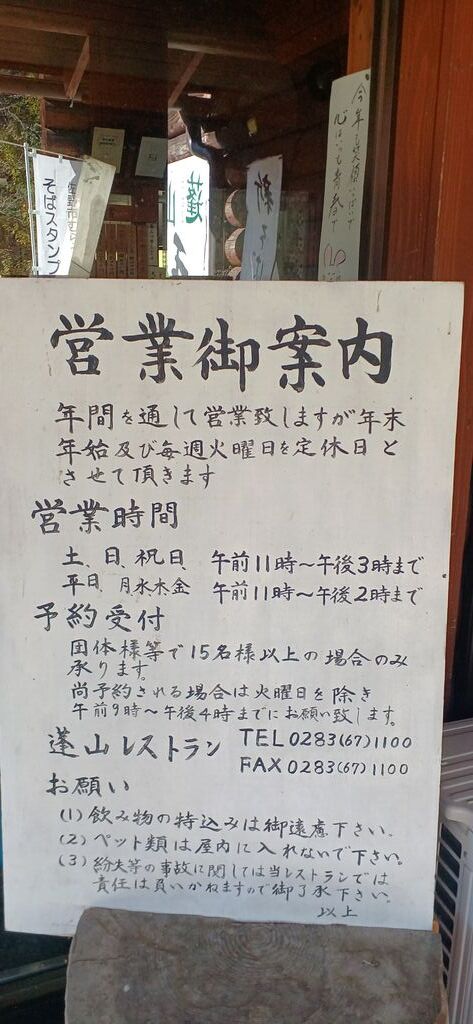 今年も笑顔いっぱいで
心はいつも青春で
そばスタンプ
蓬山
新そば
営業御案内
年間を通して営業致しますが年末
年始及び毎週火曜日を定休日と
させて頂きます
営業時間
土、日、祝日、午前11時〜午後3時まで
平日、月水木金 午前11時〜午後2時まで
予約受付
団体様等で15名様以上の場合のみ
承ります。
尚予約される場合は火曜日を除き
午前9時〜午後4時までにお願い致します。
蓬山レストラン TEL 0283(67)1100
FAX 0283(67)1100
お願い
(1) 飲み物の持込みは御遠慮下さい。
(2) ペット類は屋内に入れないで下さい。
(3) 紛失等の事故に関しては当レストランでは
責任は負いかねますので御了承下さい。
以上